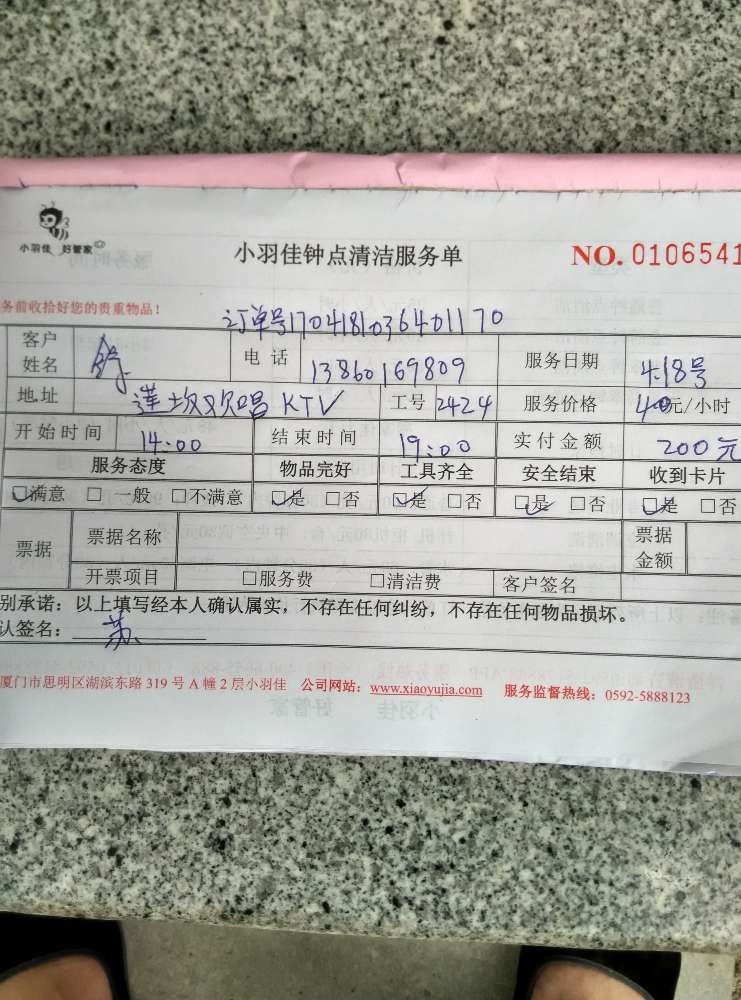 小羽佳 好管家
小羽佳钟点清洁服务单
NO. 0106541
务前收拾好您的贵重物品!
订单号1704181036401170
客户姓名 电话 13860169809 服务日期 4.18号
地址 莲坂欢唱 KTV 工号 2424 服务价格 40元/小时
开始时间 14:00 结束时间 19:00 实付金额 200元
服务态度 物品完好 工具齐全 安全结束 收到卡片
☑满意 □一般 □不满意 ☑是 □否 ☑是 □否 ☑是 □否 ☑是 □否
票据 票据名称 票据金额
开票项目 □服务费 □清洁费 客户签名
别承诺:以上填写经本人确认属实,不存在任何纠纷,不存在任何物品损坏。
认签名: 苏
厦门市思明区湖滨东路 319 号 A 幢 2 层小羽佳 公司网站:www.xiaoyujia.com 服务监督热线:0592-5888123